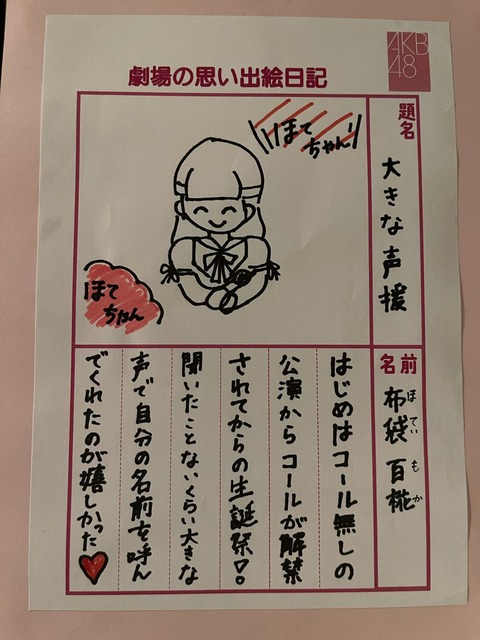 AKB
48
劇場の思い出絵日記
題名
大きな声援
ほて
ちゃん!
ほて
ちゃん
名前
布袋 百椛
ほてい もか
はじめはコール無しの
公演からコールが解禁
されてからの生誕祭!!
聞いたことないくらい大きな
声で自分の名前を呼ん
でくれたのが嬉しかった